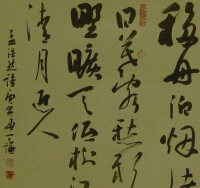 移舟泊烟渚
日暮客愁新
野曠天低樹江
清月近人
孟浩然詩